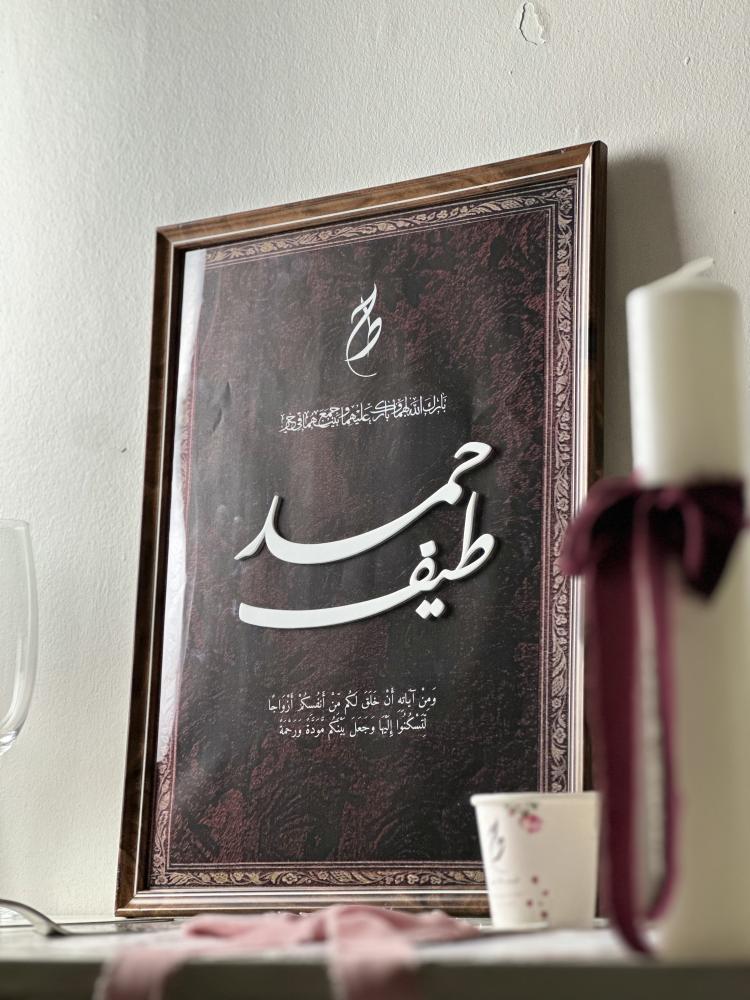 ط ح
بارك الله لهما وبارك عليهما وجمع بينهما في خير
حمد
طيف
وَمِنْ آيَاتِهِ أَنْ خَلَقَ لَكُم مِّنْ أَنفُسِكُمْ أَزْوَاجًا
لِّتَسْكُنُوا إِلَيْهَا وَجَعَلَ بَيْنَكُم مَّوَدَّةً وَرَحْمَةً